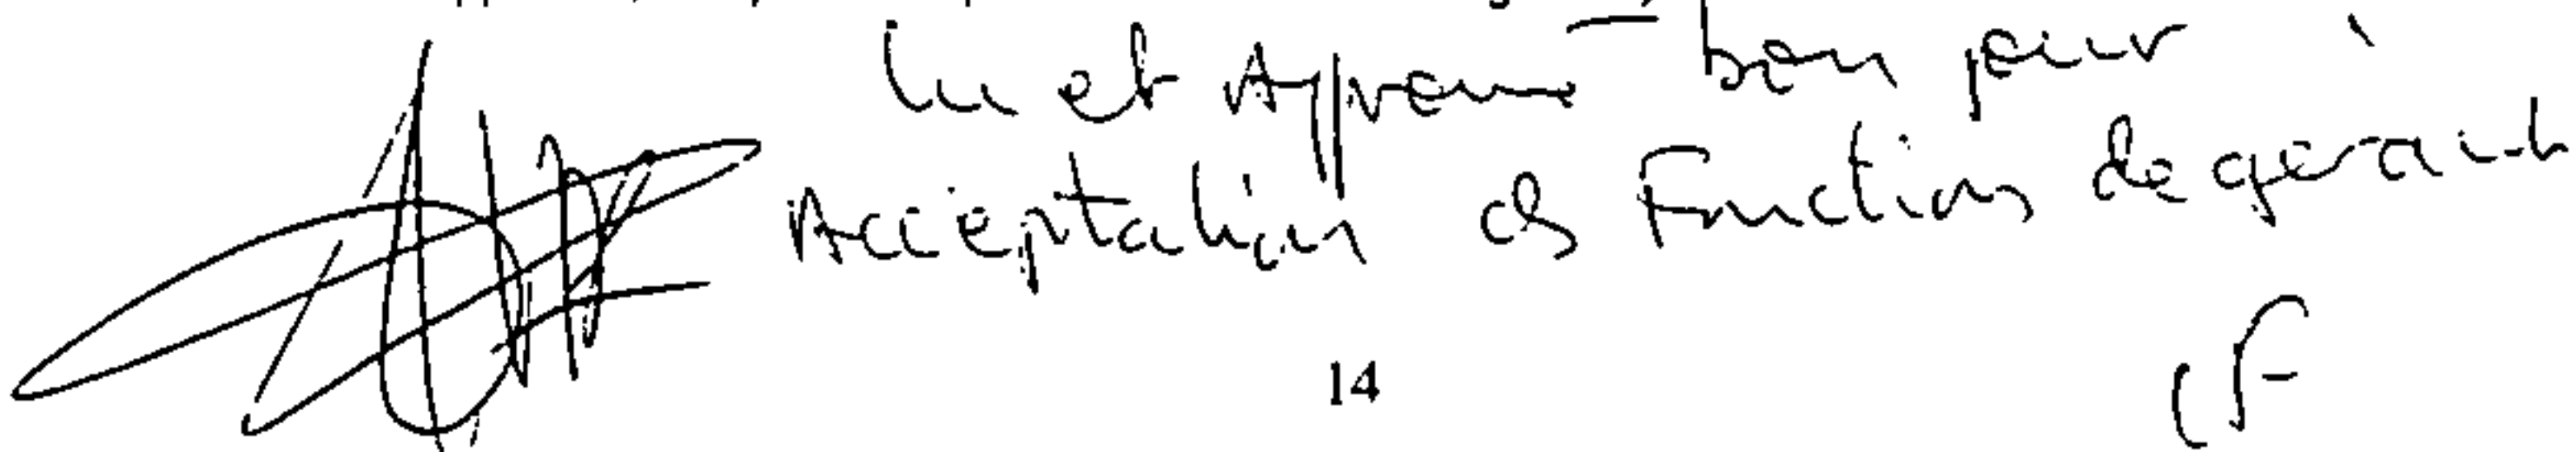 lu et Approuvé bon pour
Acceptation des Fonctions de gérant
14